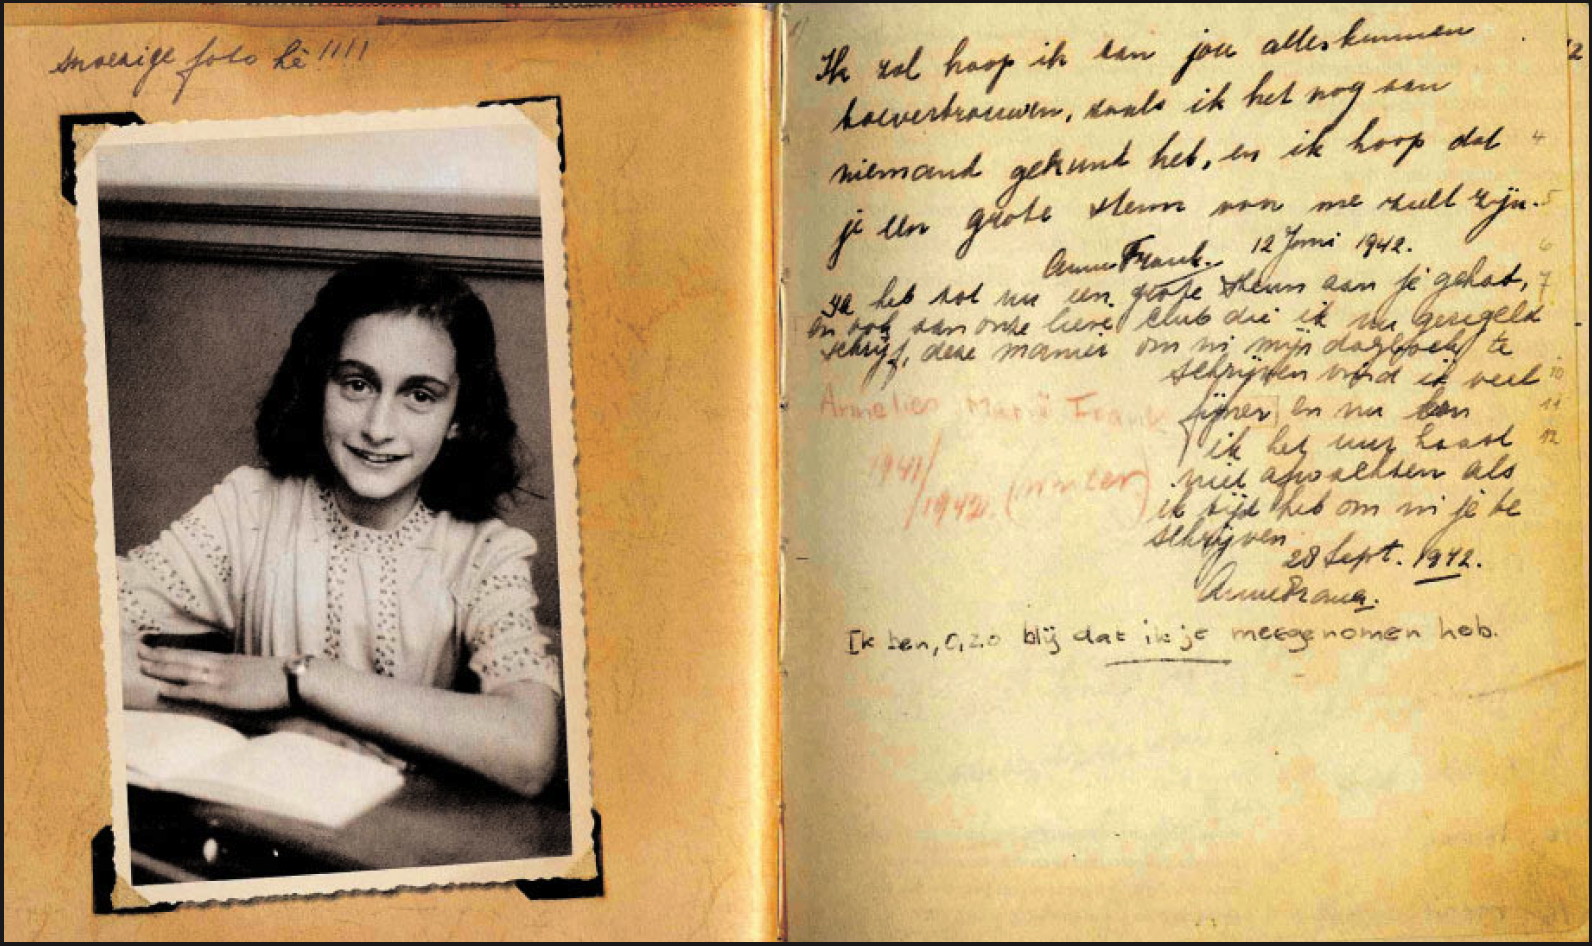 snoezige foto hè!!!!
Ik zal hoop ik aan jou alles kunnen
toevertrouwen, zoals ik het nog aan
niemand gekund heb, en ik hoop dat
je een grote steun van me zult zijn.
Anne Frank. 12 Juni 1942.
Ik heb tot nu een grote steun aan je gehad,
en ook aan onze lieve club die ik nu geregeld
schrijf, deze manier om in mijn dagboek te
schrijven vind ik veel
fijner en nu kan
ik het uur haast
niet afwachten als
ik tijd heb om in je te
schrijven
28 Sept. 1942.
Anne Frank.
Annelies Marie Frank
1941/
1942. (winter)
Ik ben, o, zo blij dat ik je meegenomen heb.
2
4
5
6
7
10
11
12